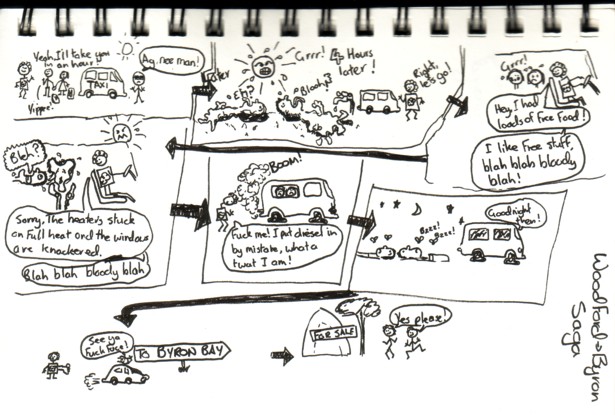 Yeah, I'll take you
in an hour
Ag, nee man!
TAXI
Yippee!
later
Grrr! 4 Hours
later!
Eh?
Bloody?
Right,
let's go!
Grrr!
Hey, I had
loads of free food!
I like free stuff,
blah blah bloody
blah!
Bleh?
Sorry, The heater's stuck
on full heat and the windows
are knackered.
Blah blah bloody blah
BOOM!
Fuck me! I put diesel in
by mistake, what a
twat I am!
Bzzz!
Bzzz!
Goodnight
then!
See ya
Fuck face!
TO BYRON BAY
FOR SALE
Yes please!
Woodford→Byron
Saga